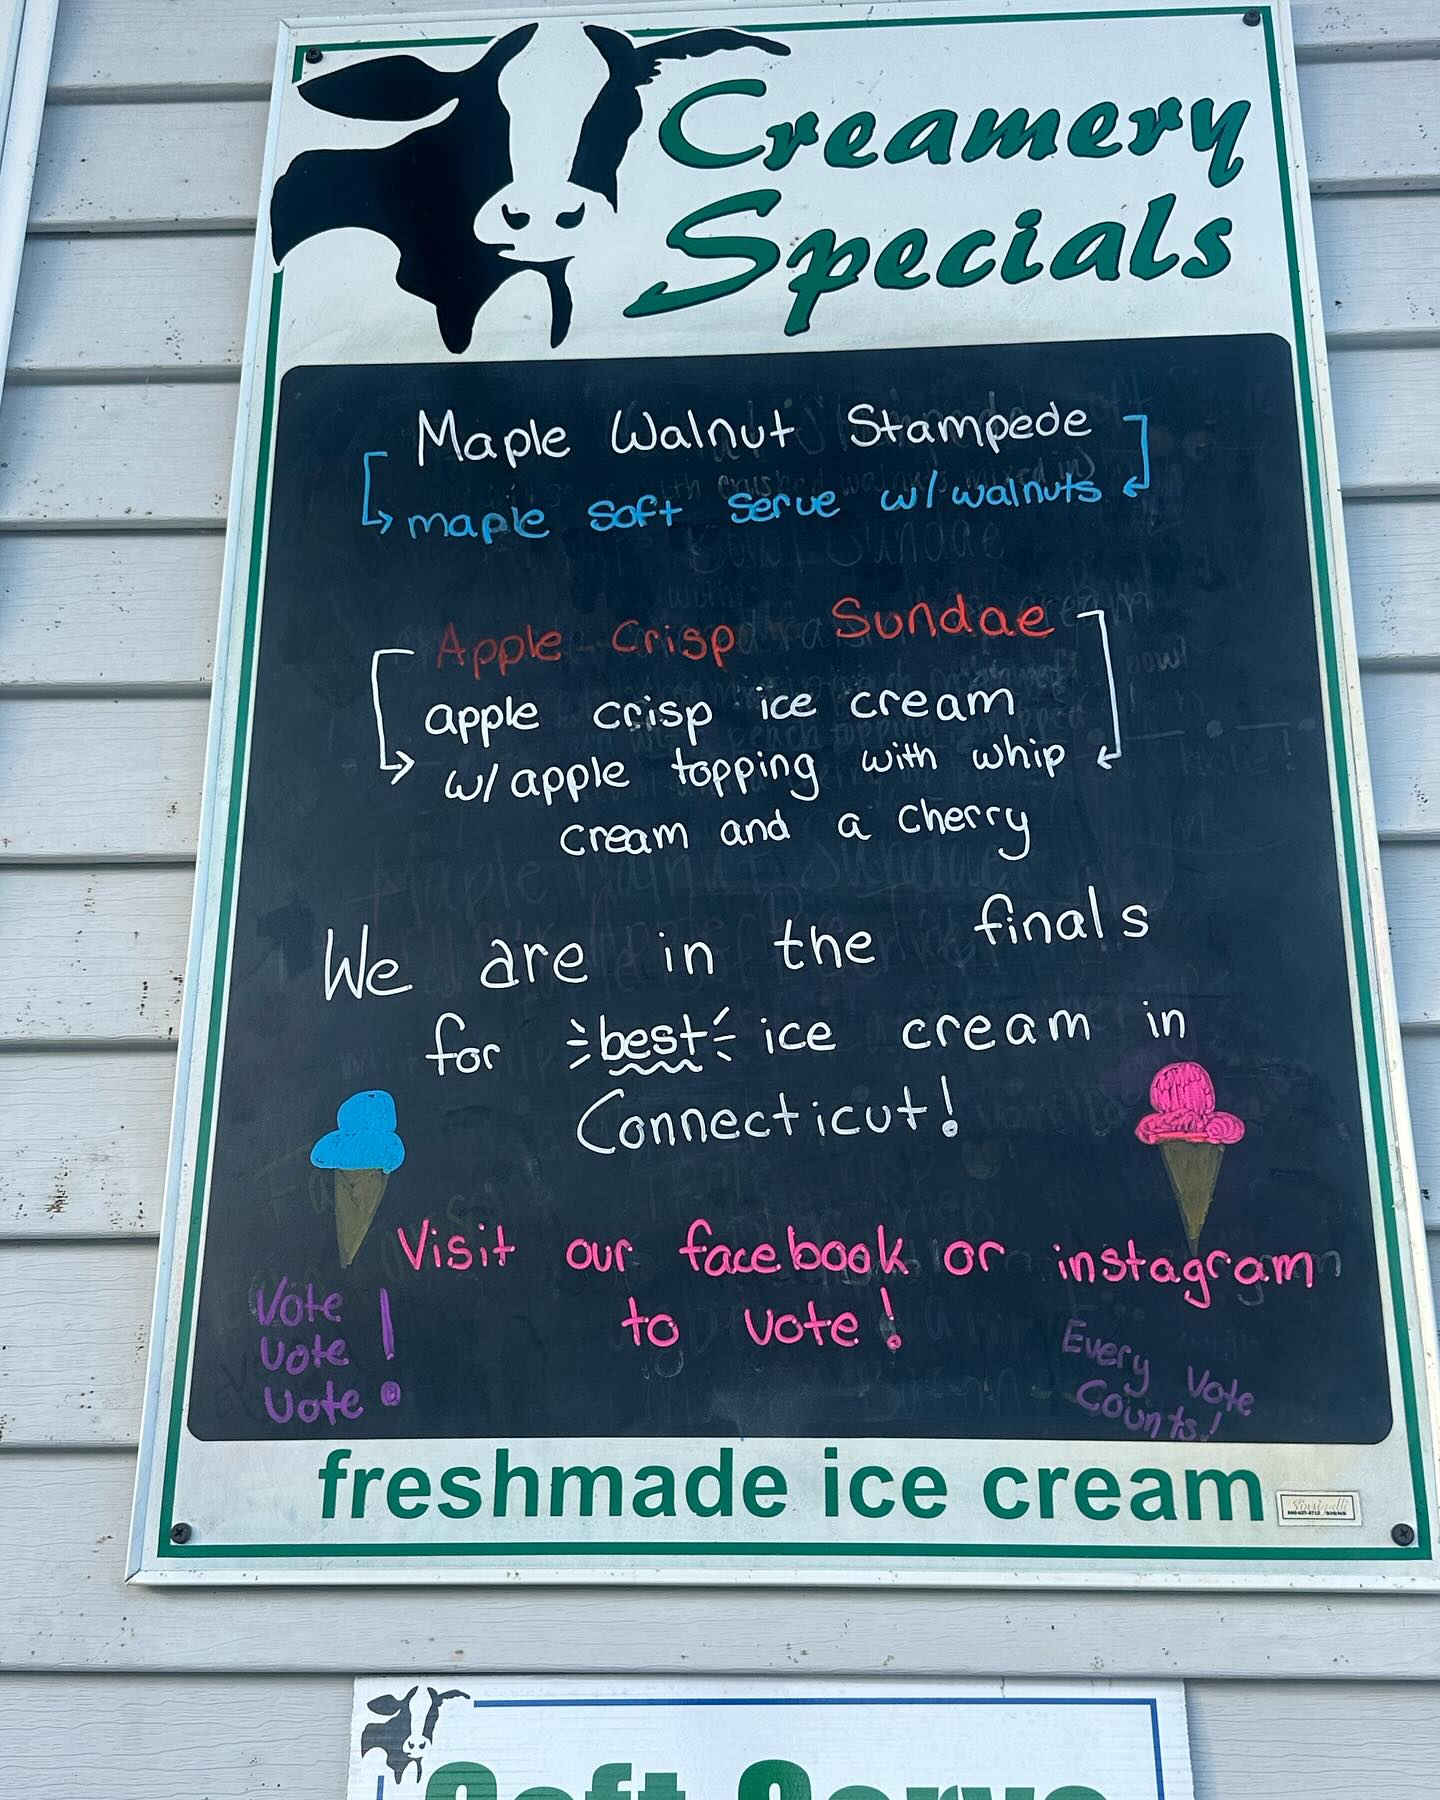 Creamery
Specials
Maple Walnut Stampede
maple soft serve w/walnuts
Apple Crisp Sundae
apple crisp ice cream
w/apple topping with whip
cream and a cherry
We are in the finals
for best ice cream in
Connecticut!
Visit our facebook or instagram
to vote!
Vote
Vote
Vote!
Every Vote
Counts!
freshmade ice cream
Soft Serve